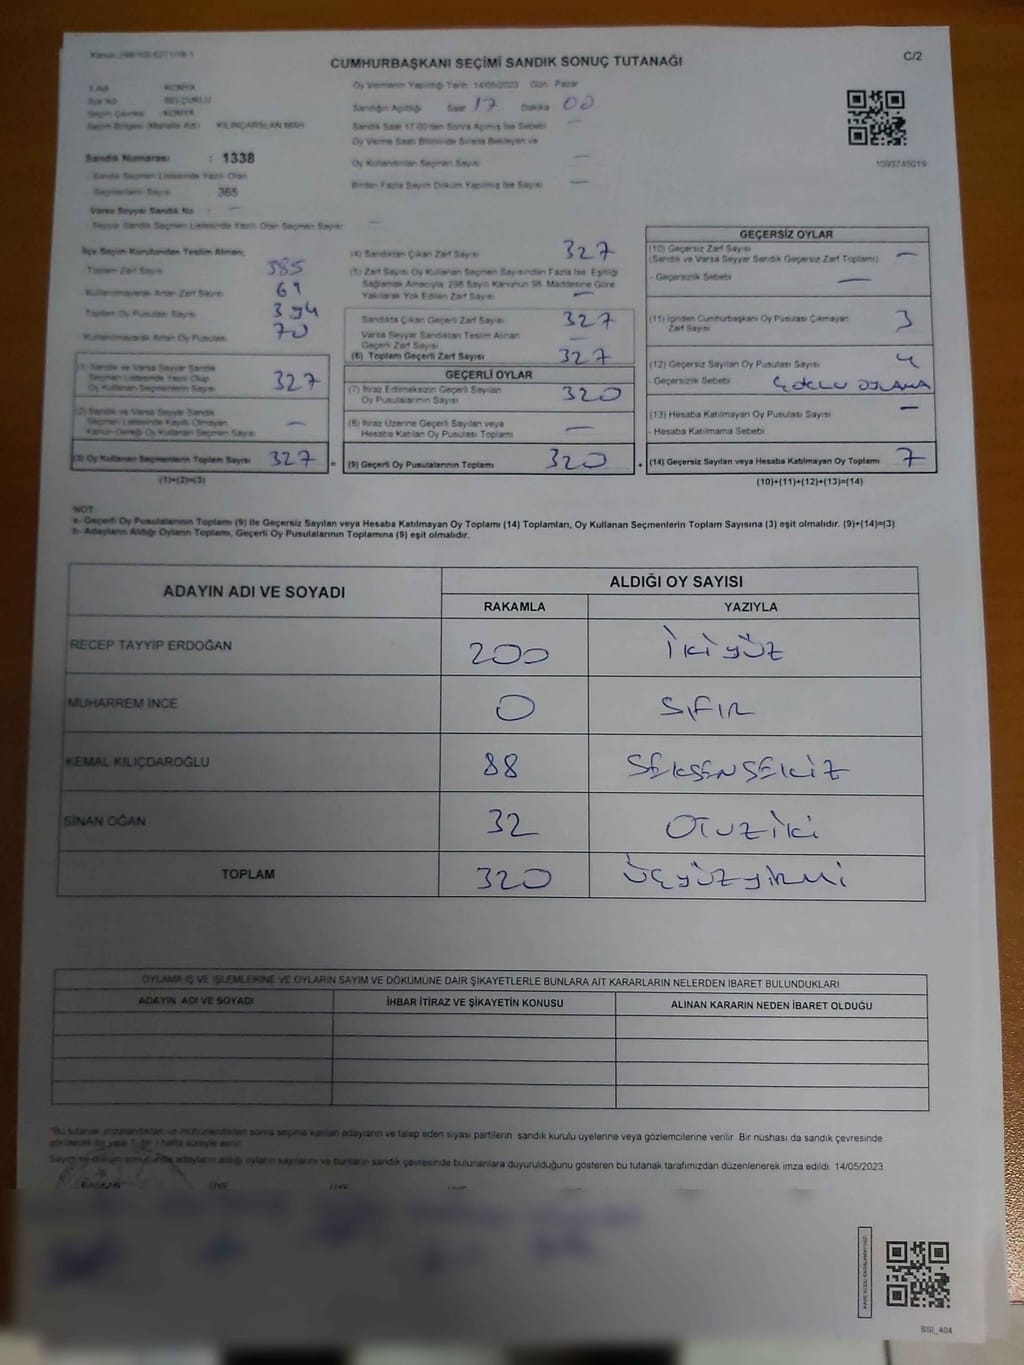 C/2
CUMHURBAŞKANI SEÇİMİ SANDIK SONUÇ TUTANAĞI
Oy Vermenin Yapıldığı Tarih 14/05/2023 Gün Pazar
Sandığın Açıldığı Saat 17 Dakika 00
Sandık Saat 17:00'den Sonra Açılmış İse Sebebi —
Oy Verme Saati Bitiminde Sırada Bekleyen ve
Oy Kullandırılan Seçmen Sayısı —
Birden Fazla Sayım Döküm Yapılmış İse Sayısı —
1093745019
İl Adı : KONYA
İlçe Adı : SELÇUKLU
Seçim Çevresi : KONYA
Seçim Bölgesi (Mahalle Adı) KILINÇARSLAN MAH
Sandık Numarası : 1338
Sandık Seçmen Listesinde Yazılı Olan
Seçmenlerin Sayısı 365
Varsa Seyyar Sandık No : —
Seyyar Sandık Seçmen Listesinde Yazılı Olan Seçmen Sayısı —
İlçe Seçim Kurulundan Teslim Alınan;
Toplam Zarf Sayısı 385
Kullanılmayarak Artan Zarf Sayısı 61
Toplam Oy Pusulası Sayısı 394
Kullanılmayarak Artan Oy Pusulası 70
(1) Sandık ve Varsa Seyyar Sandık
Seçmen Listesinde Yazılı Olup
Oy Kullanan Seçmenlerin Sayısı 327
(2) Sandık ve Varsa Seyyar Sandık
Seçmen Listesinde Kayıtlı Olmayan
Kanun Gereği Oy Kullanan Seçmen Sayısı —
(3) Oy Kullanan Seçmenlerin Toplam Sayısı 327 =
(1)+(2)=(3)
(4) Sandıktan Çıkan Zarf Sayısı 327
(5) Zarf Sayısı Oy Kullanan Seçmen Sayısından Fazla İse, Eşitliği
Sağlamak Amacıyla, 298 Sayılı Kanunun 98. Maddesine Göre
Yakılarak Yok Edilen Zarf Sayısı —
Sandıkta Çıkan Geçerli Zarf Sayısı 327
Varsa Seyyar Sandıktan Teslim Alınan
Geçerli Zarf Sayısı —
(6) Toplam Geçerli Zarf Sayısı 327
GEÇERLİ OYLAR
(7) İtiraz Edilmeksizin Geçerli Sayılan
Oy Pusulalarının Sayısı 320
(8) İtiraz Üzerine Geçerli Sayılan veya
Hesaba Katılan Oy Pusulası Toplamı —
(9) Geçerli Oy Pusulalarının Toplamı 320 +
GEÇERSİZ OYLAR
(10) Geçersiz Zarf Sayısı
(Sandık ve Varsa Seyyar Sandık Geçersiz Zarf Toplamı) —
- Geçersizlik Sebebi —
(11) İçinden Cumhurbaşkanı Oy Pusulası Çıkmayan
Zarf Sayısı 3
(12) Geçersiz Sayılan Oy Pusulası Sayısı 4
- Geçersizlik Sebebi ÇOKLU OYLAMA
(13) Hesaba Katılmayan Oy Pusulası Sayısı —
- Hesaba Katılmama Sebebi
(14) Geçersiz Sayılan veya Hesaba Katılmayan Oy Toplamı 7
(10)+(11)+(12)+(13)=(14)
NOT:
a- Geçerli Oy Pusulalarının Toplamı (9) ile Geçersiz Sayılan veya Hesaba Katılmayan Oy Toplamı (14) Toplamları, Oy Kullanan Seçmenlerin Toplam Sayısına (3) eşit olmalıdır. (9)+(14)=(3)
b- Adayların Aldığı Oyların Toplamı, Geçerli Oy Pusulalarının Toplamına (9) eşit olmalıdır.
ADAYIN ADI VE SOYADI ALDIĞI OY SAYISI
RAKAMLA YAZIYLA
RECEP TAYYİP ERDOĞAN 200 İkiyüz
MUHARREM İNCE 0 SIFIR
KEMAL KILIÇDAROĞLU 88 SEKSENSEKİZ
SİNAN OĞAN 32 OTUZİKİ
TOPLAM 320 ÜÇYÜZYİRMİ
OYLAMA İŞ VE İŞLEMLERİNE VE OYLARIN SAYIM VE DÖKÜMÜNE DAİR ŞİKAYETLERLE BUNLARA AİT KARARLARIN NELERDEN İBARET BULUNDUKLARI
ADAYIN ADI VE SOYADI İHBAR İTİRAZ VE ŞİKAYETİN KONUSU ALINAN KARARIN NEDEN İBARET OLDUĞU
*Bu tutanak imzalandıktan ve mühürlendikten sonra seçime katılan adayların ve talep eden siyasi partilerin sandık kurulu üyelerine veya gözlemcilerine verilir. Bir nüshası da sandık çevresinde
görülecek bir yere 1 (bir) hafta süreyle asılır.
Sayım ve döküm sonucunda adayların aldığı oyların sayılarını ve bunların sandık çevresinde bulunanlara duyurulduğunu gösteren bu tutanak tarafımızdan düzenlenerek imza edildi. 14/05/2023
BAŞKAN ÜYE ÜYE ÜYE
SSI_404